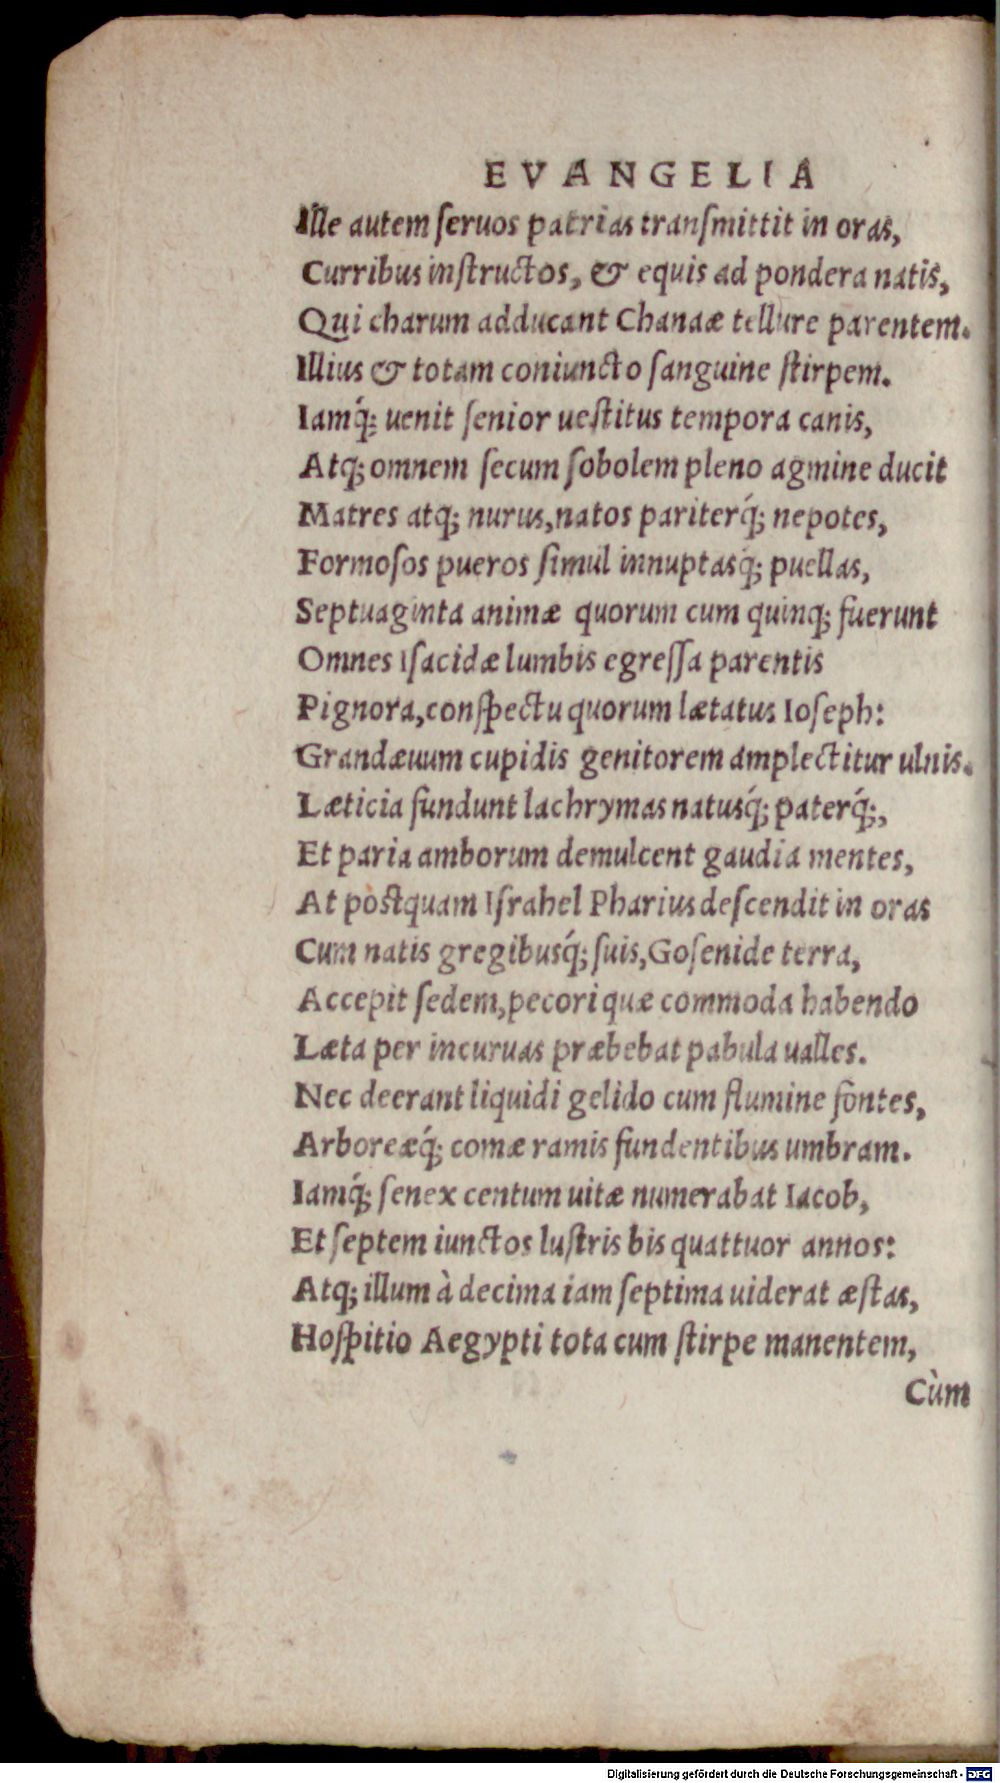 EVANGELIA
Ille autem ſeruos patrias tranſmittit in oras,
Curribus inſtructos, & equis ad pondera natis,
Qui charum adducant Chanaæ tellure parentem.
Illius & totam coniuncto ſanguine ſtirpem.
Iamq́; uenit ſenior ueſtitus tempora canis,
Atq; omnem ſecum ſobolem pleno agmine ducit
Matres atq; nurus, natos pariterq́; nepotes,
Formoſos pueros ſimul innuptasq́; puellas,
Septuaginta animæ quorum cum quinq; fuerunt
Omnes Iſacidæ lumbis egreſſa parentis
Pignora, conſpectu quorum lætatus Ioſeph:
Grandæuum cupidis genitorem amplectitur ulnis.
Læticia fundunt lachrymas natusq́; paterq́;,
Et paria amborum demulcent gaudia mentes,
At pòstquam Iſrahel Pharius deſcendit in oras
Cum natis gregibusq́; ſuis, Goſenide terra,
Accepit ſedem, pecori quæ commoda habendo
Læta per incuruas præbebat pabula ualles.
Nec deerant liquidi gelido cum flumine fontes,
Arboreæq́; comæ ramis fundentibus umbram.
Iamq́; ſenex centum uitæ numerabat Iacob,
Et ſeptem iunctos luſtris bis quattuor annos:
Atq; illum à decima iam ſeptima uiderat æſtas,
Hoſpitio Aegypti tota cum ſtirpe manentem,
Cùm
Digitalisierung gefördert durch die Deutsche Forschungsgemeinschaft - DFG